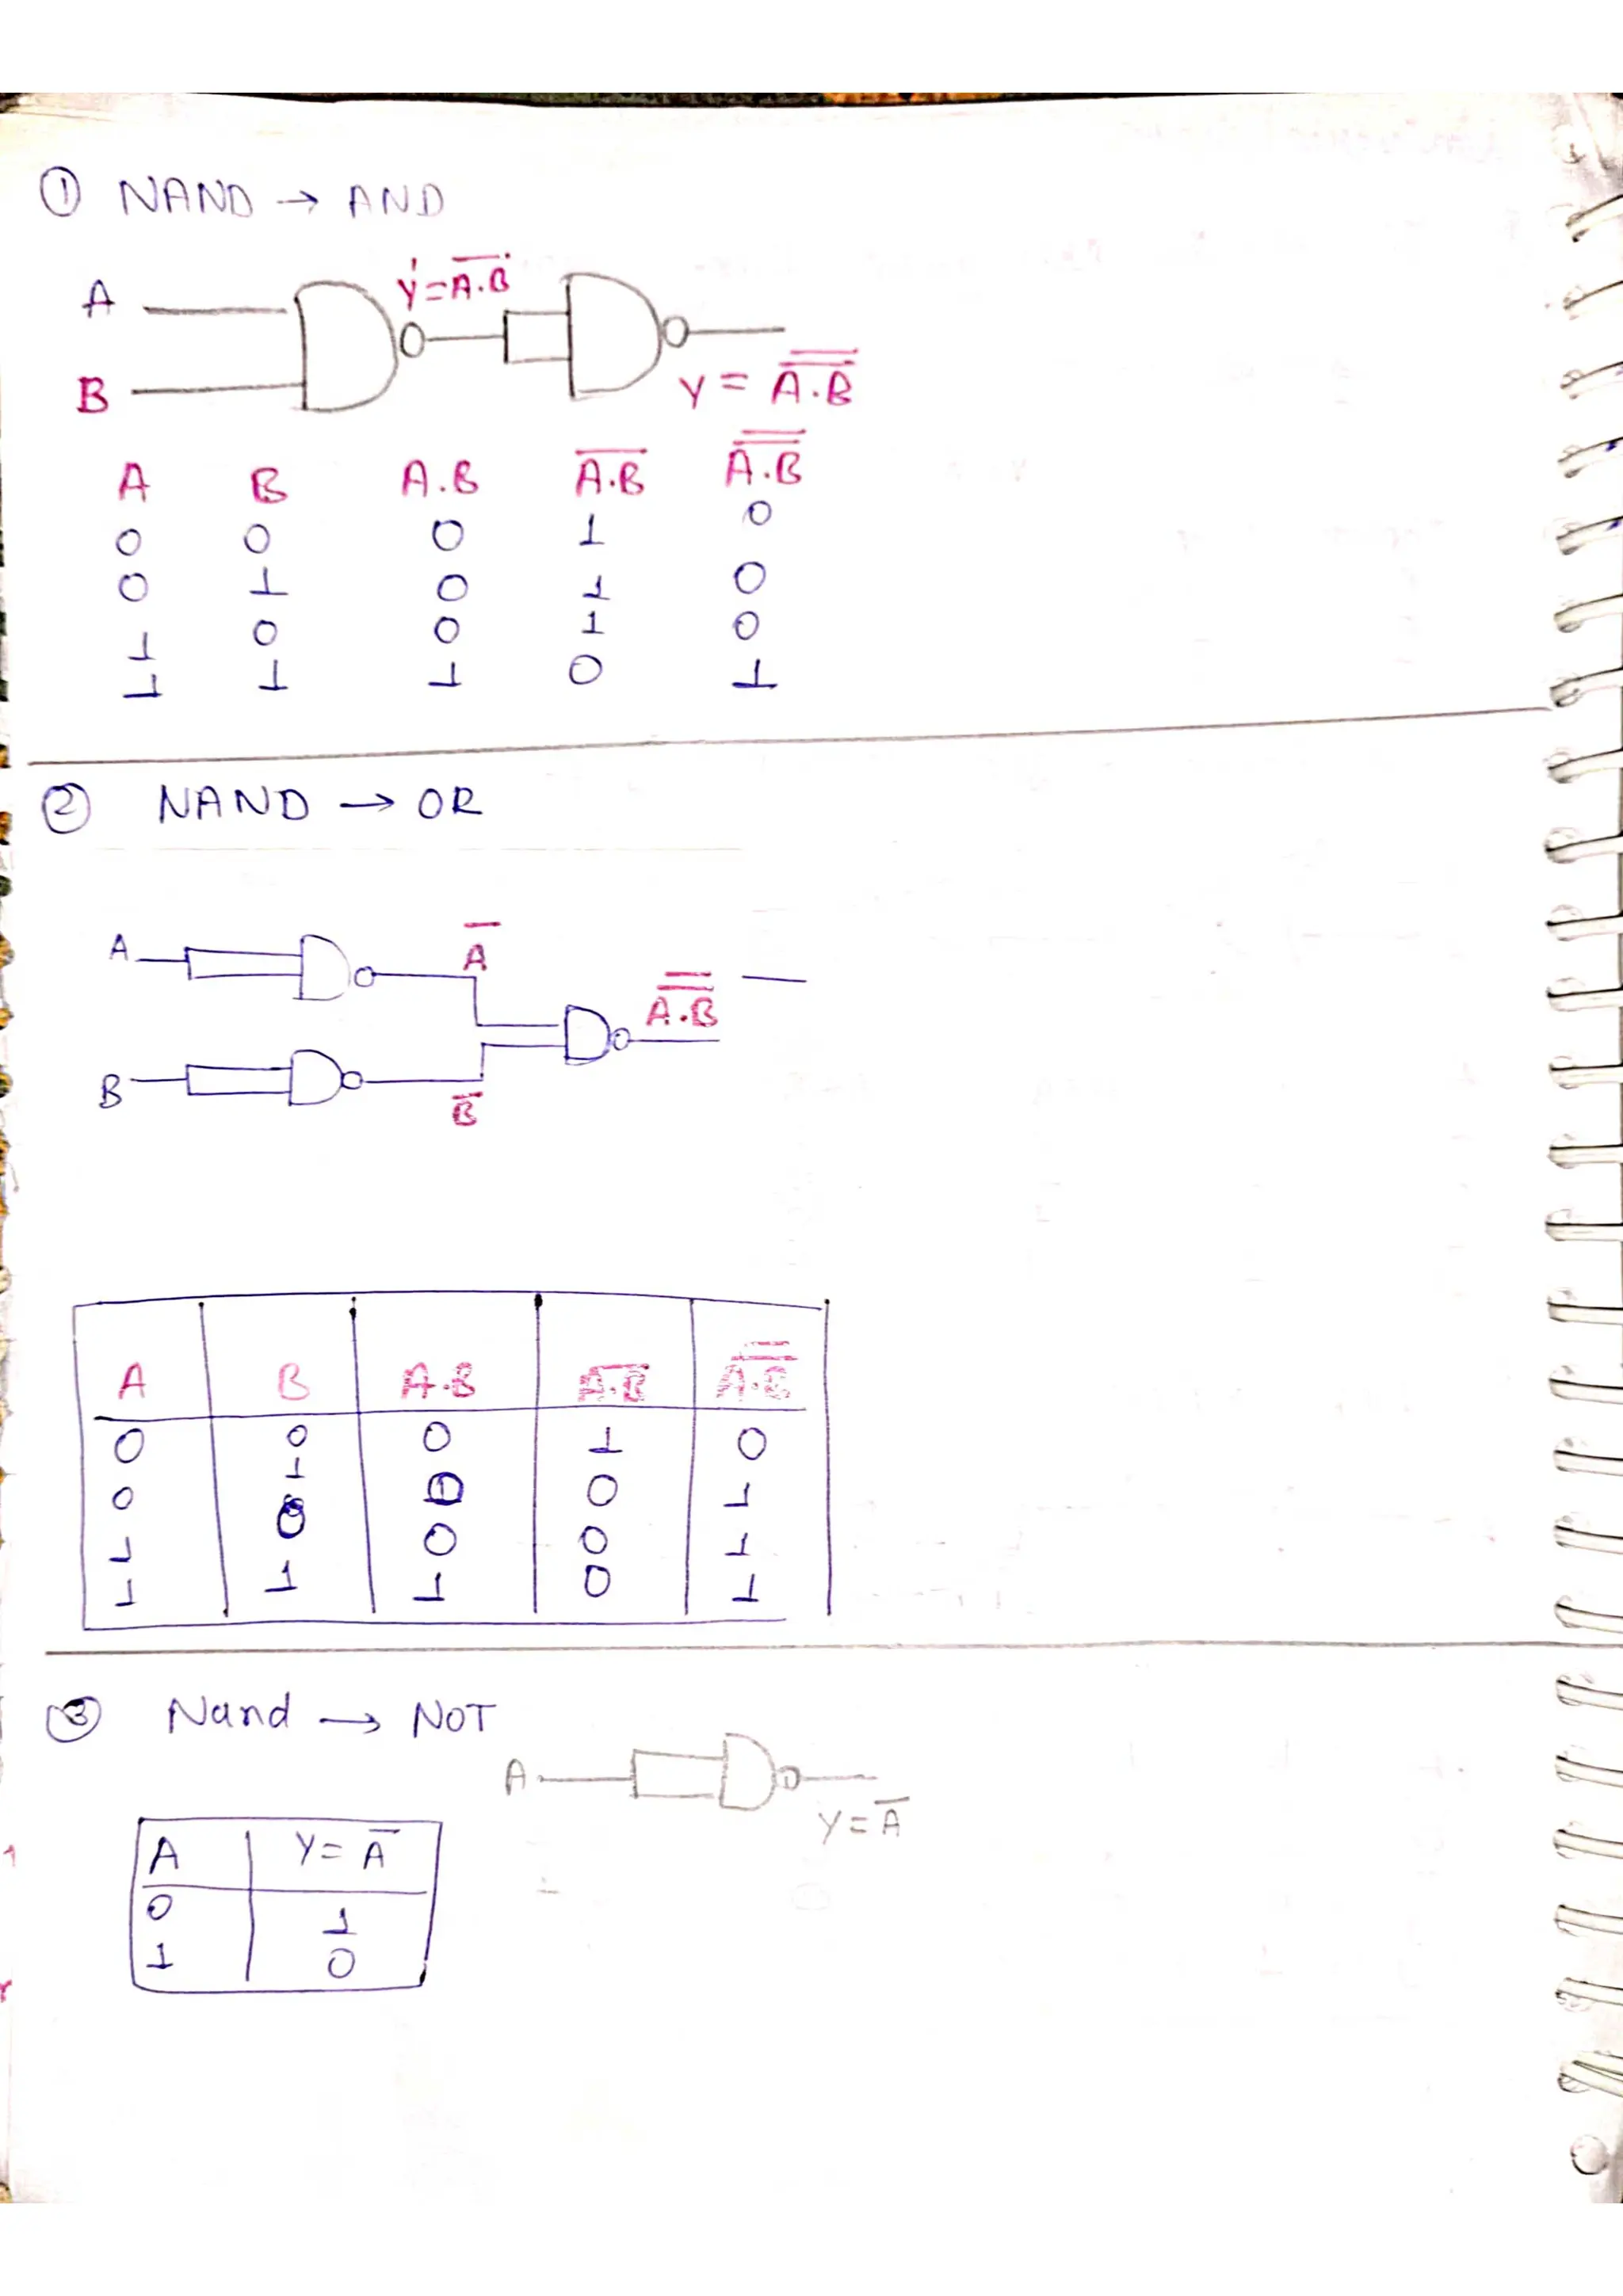 ① NAND → AND
A
Y' = A̅.̅B̅
B
Y = A̿.̿B̿
A B A.B A̅.̅B̅ A̿.̿B̿
0 0 0 1 0
0 1 0 1 0
1 0 0 1 0
1 1 1 0 1
② NAND → OR
A A̅
A̿.̿B̿
B B̅
A B A.B A̅.̅B̅ A̿.̿B̿
0 0 0 1 0
0 1 0 1
1 0 0 0 1
1 1 1 0 1
③ Nand → NOT
A
Y = A̅
A Y = A̅
0 1
1 0